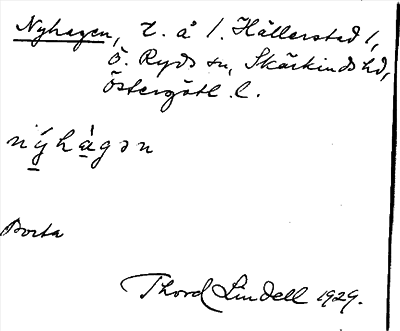 Nyhagen, t. å 1. Hällerstad 1,
Ö. Ryds sn, Skärkinds hd,
Östergötl. l.
nýhàgən
Borta
Thord Lindell 1929.